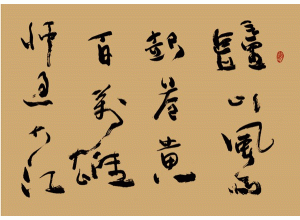 鍾山風雨
起蒼黃
百萬雄
師過大江